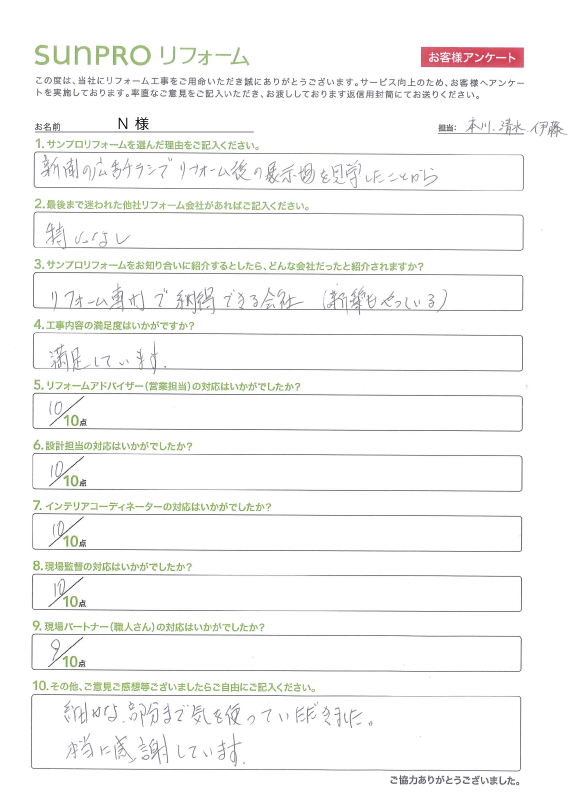 SUNPRO リフォーム
お客様アンケート
この度は、当社にリフォーム工事をご用命いただき誠にありがとうございます。サービス向上のため、お客様へアンケー
トを実施しております。率直なご意見をご記入いただき、お渡ししております返信用封筒にてお送りください。
お名前 N 様 担当: 本川. 清水. 伊藤
1. サンプロリフォームを選んだ理由をご記入ください。
新聞の広告チラシでリフォーム後の展示場を見学したことから
2. 最後まで迷われた他社リフォーム会社があればご記入ください。
特になし
3. サンプロリフォームをお知り合いに紹介するとしたら、どんな会社だったと紹介されますか?
リフォーム専門で納得できる会社 (新築もやっている)
4. 工事内容の満足度はいかがですか?
満足しています.
5. リフォームアドバイザー(営業担当)の対応はいかがでしたか?
10/10点
6. 設計担当の対応はいかがでしたか?
10/10点
7. インテリアコーディネーターの対応はいかがでしたか?
10/10点
8. 現場監督の対応はいかがでしたか?
10/10点
9. 現場パートナー(職人さん)の対応はいかがでしたか?
9/10点
10. その他、ご意見ご感想等ございましたらご自由にご記入ください。
細かな部分まで気を使っていただきました。
本当に感謝しています.
ご協力ありがとうございました。